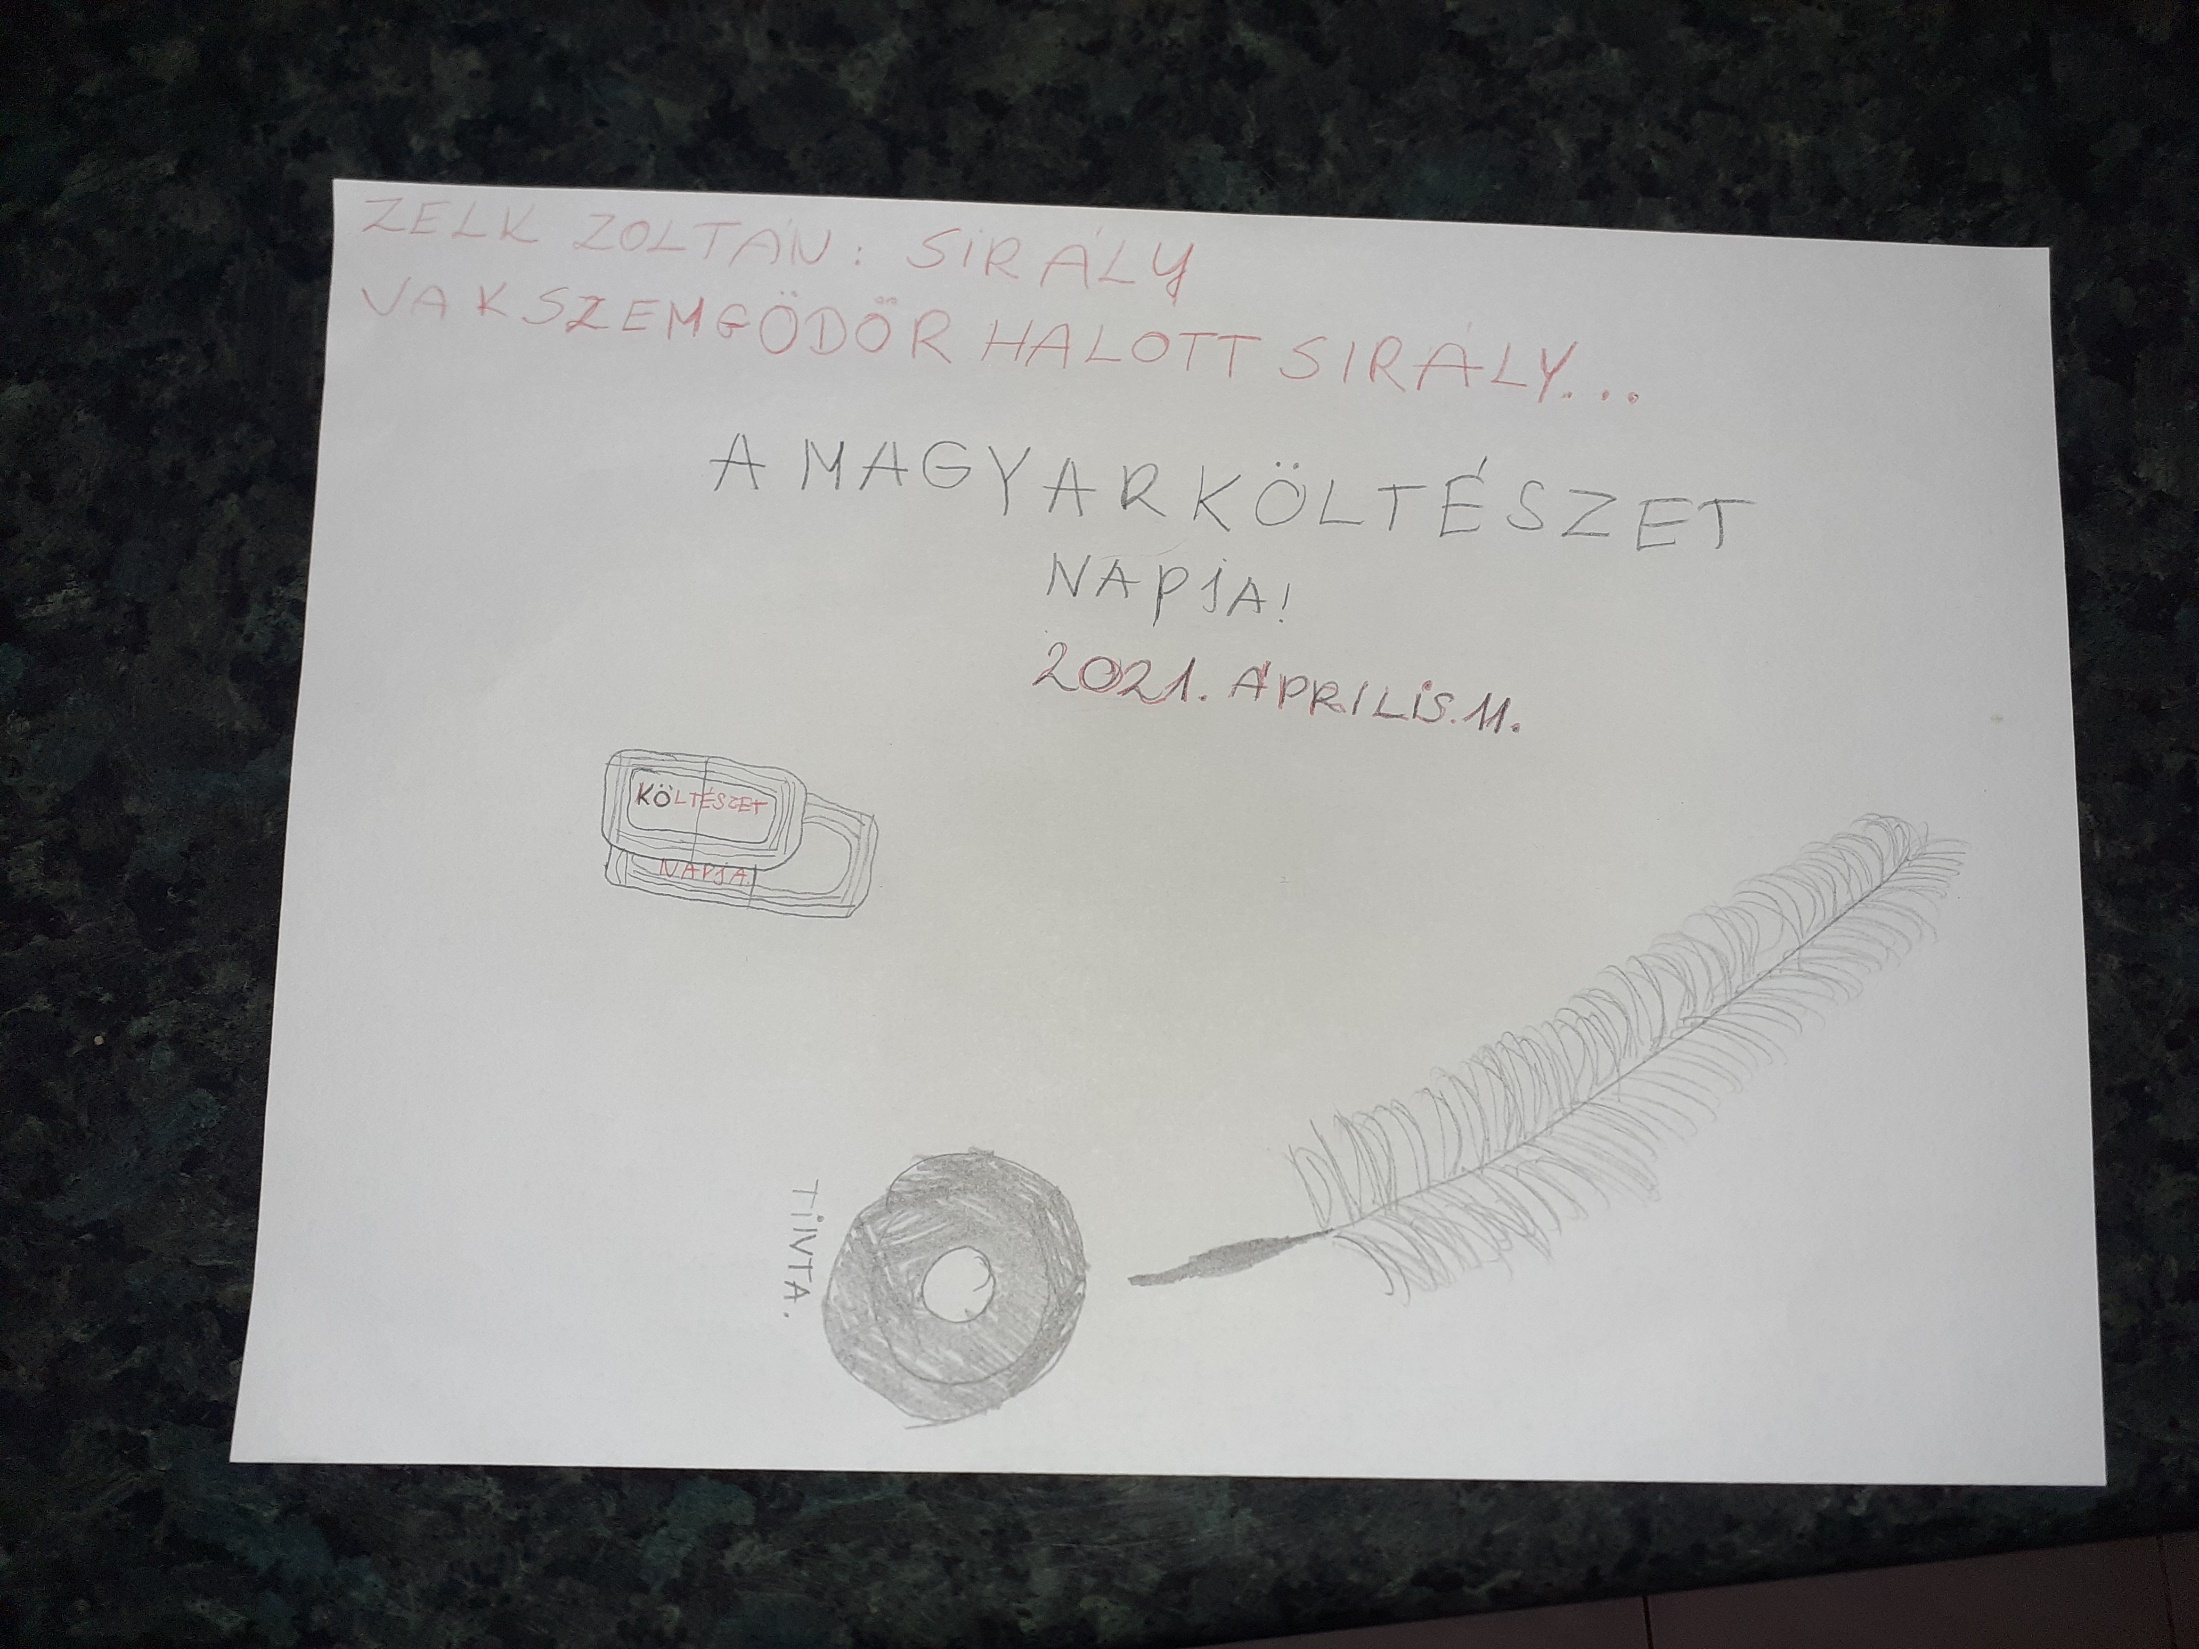 ZELK ZOLTÁN: SIRÁLY
VAKSZEMGÖDÖR HALOTT SIRÁLY...
A MAGYAR KÖLTÉSZET
NAPJA!
2021. ÁPRILIS. 11.
KÖLTÉSZET
NAPJA!
TiIVTA.